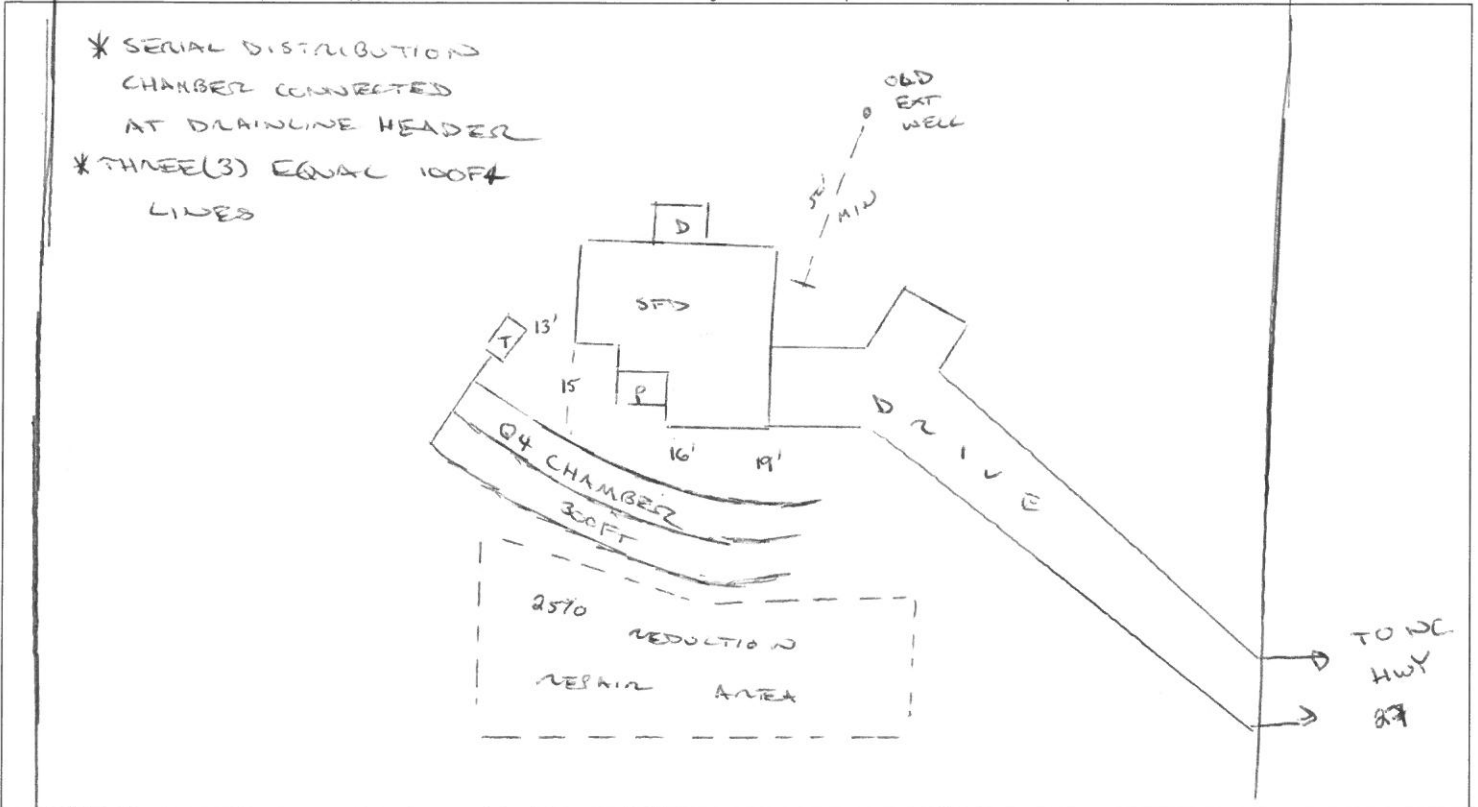 * SERIAL DISTRIBUTION
CHAMBER CONNECTED
AT DRAINLINE HEADER
* THREE(3) EQUAL 100FT
LINES
OLD
EXT
WELL
MIN
D
SFD
T
13'
15
P
16'
19'
DRIVE
Q4 CHAMBER
300FT
25%
REDUCTION
REPAIR AREA
TO NC
HWY